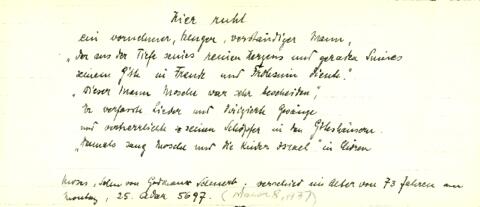 Hier ruht
ein vornehmer, kluger, verständiger Mann,
„Der aus der Tiefe seines reinen Herzens und geraden Sinnes
seinem G'tte in Freude und Frohsinn diente."
„Dieser Mann Mosche war sehr bescheiden",
Er verfasste Lieder und dirigierte Gesänge
und verherrlichte seinen Schöpfer in den G'tteshäusern.
„Damals sang Mosche und die Kinder Israel" in Chören
Moses, Sohn von Schenert, verschied im Alter von 73 Jahren am
Montag, 25. Adar 5697. (March 8, 1937)